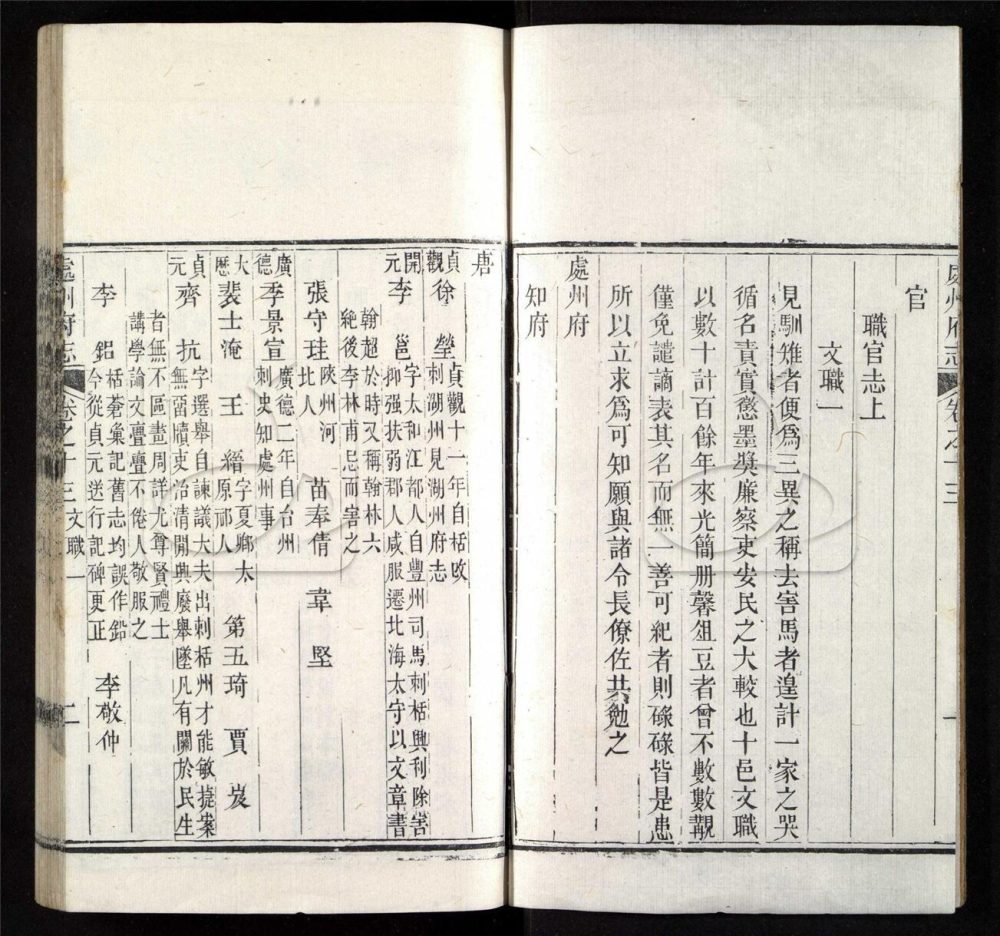 處州府志
卷之十三
一
官
職官志上
文職一
見馴雉者便為三異之稱去害馬者遑計一家之哭
循名責實懲墨奬廉察吏安民之大較也十邑文職
以數十計百餘年來光簡册馨俎豆者曾不數數覯
僅免譴謫表其名而無一善可紀者則碌碌皆是患
所以立求為可知願與諸令長僚佐共勉之
處州府
知府
唐
貞觀
徐瑩
貞觀十一年自栝改
刺湖州見湖州府志
開元
李邕
字太和江都人自豐州司馬刺栝興利除害
抑强扶弱郡人咸服遷北海太守以文章書
翰超於時又稱翰林六
絶後李林甫忌而害之
張守珪
陝州河
北人
苗奉倩
韋堅
廣德
季景宣
廣德二年自台州
刺史知處州事
大歷
裴士淹
王縉
字夏鄉太
原祁人
第五琦
賈岌
貞元
齊抗
字遐舉自諫議大夫出刺栝州才能敏捷案
無畱牘吏治清閒興廢舉墜凡有關於民生
者無不區畫周詳尤尊賢禮士
講學論文亹亹不倦人敬服之
李鋁
栝蒼彙記舊志均誤作鉛
今從貞元送行記碑更正
李敬仲
處州府志
卷之十三
文職一
二